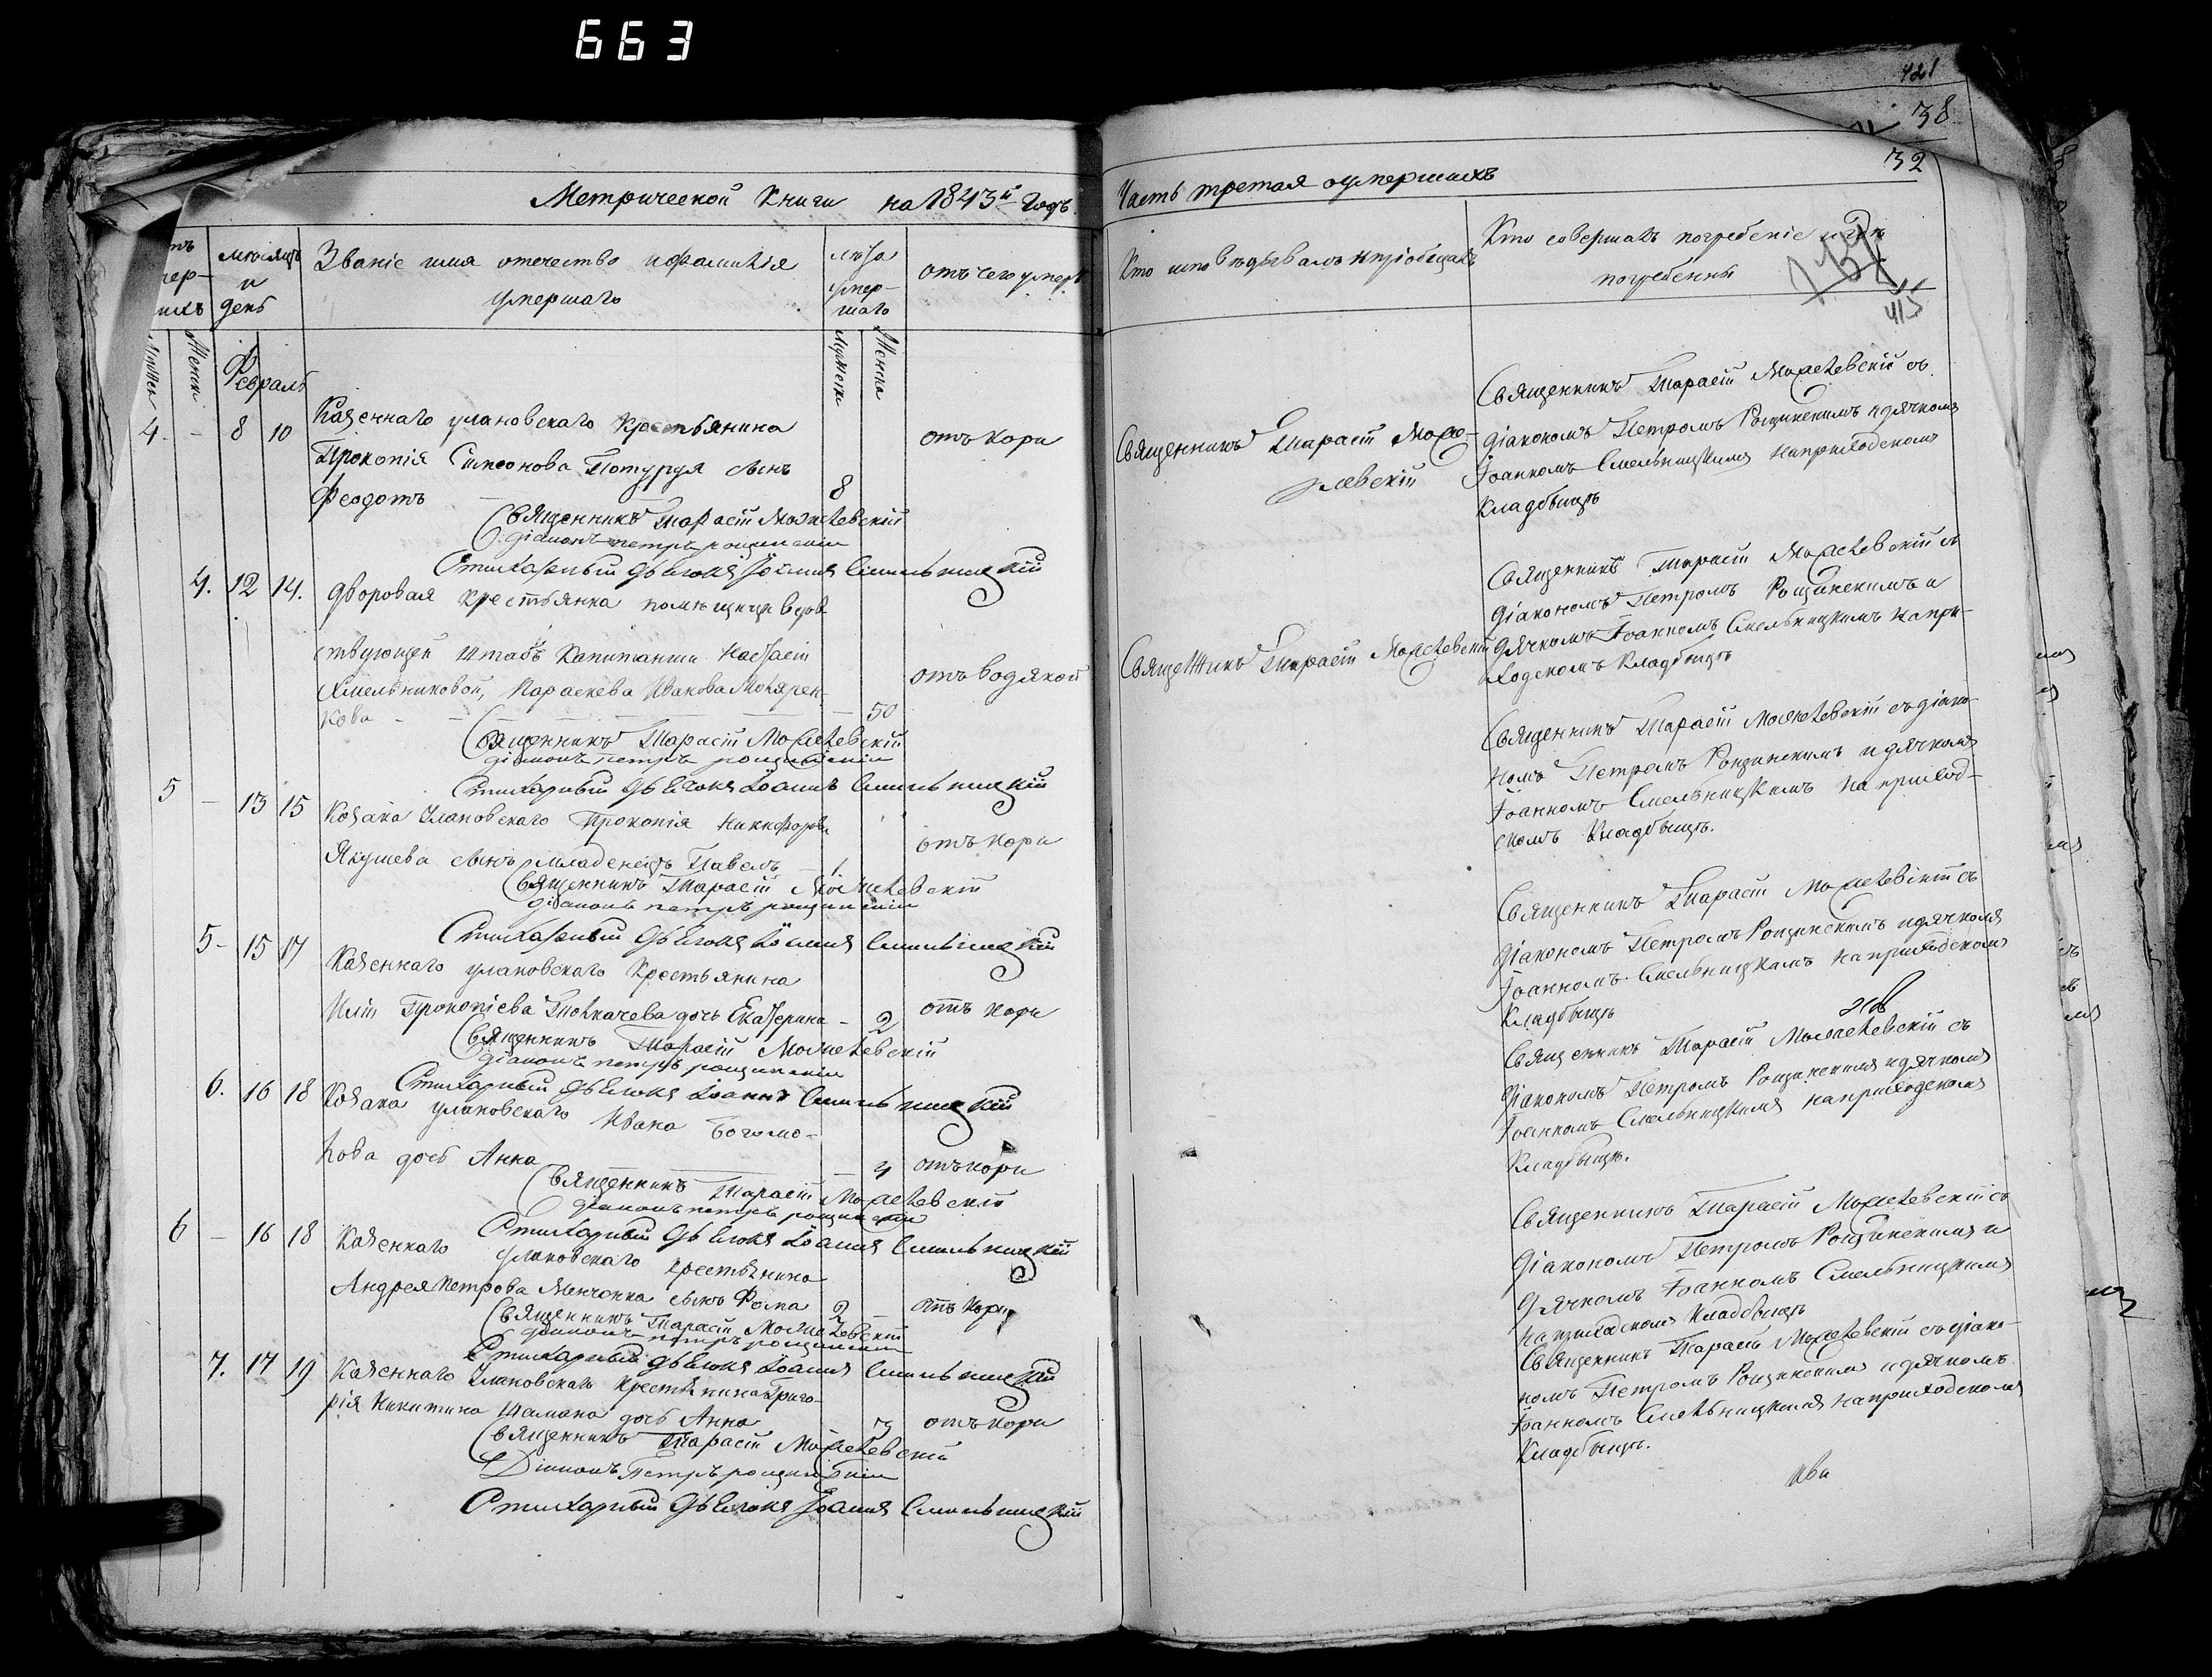 663
421
38
32
Метрической Книги на 1843й Годъ
Часть третая оумершихъ
мѣсяцъ и день
Званіе имя отечество и фамилія умершаго
лѣта умершаго
отъ чего умеръ
Кто исповѣдывалъ и пріобщалъ
Кто совершалъ погребеніе и гдѣ погребенны
415
Женск
Февраль
4. - 8 10
Казеннаго улановскаго Крестьянина
Прокопія Симеонова сынъ
Феодотъ 8
отъ кори
Священникъ Тарасій
Священникъ Тарасій съ
діакономъ Петромъ Рощинскимъ и дячкомъ
Іоанномъ Смельницкимъ на приходскомъ
Кладбищѣ
Священникъ Тарасій
діаконъ петръ рощинскій
Стихарный дьячокъ Іоаннъ Смельницкій
4. 12 14. дворовая крестьянка помѣщицы вдов
ствующей Штабъ Капитанши
Хмельниковой, Параскева Иванова
кова 50
отъ водяной
Священникъ Тарасій
Священникъ Тарасій съ
діакономъ Петромъ Рощинскимъ и
дячкомъ Іоанномъ Смельницкимъ на при-
ходскомъ Кладбищѣ
Священникъ Тарасій
діаконъ петръ рощинскій
Стихарный дьячокъ Іоаннъ Смельницкій
5 - 13 15 Козака Улановскаго Прокопія Никифорова
Якушева сынъ младенецъ Павелъ 1
отъ кори
Священникъ Тарасій съ діако
номъ Петромъ Рощинскимъ и дячкомъ
Іоанномъ Смельницкимъ на приход-
скомъ Кладбищѣ.
Священникъ Тарасій
діаконъ петръ рощинскій
Стихарный дьячокъ Іоаннъ Смельницкій
5 - 15 17 Казеннаго улановскаго Крестьянина
Иліи Прокопіева Толкачева дочь Екатерина - 2
отъ кори
Священникъ Тарасій съ
діакономъ Петромъ Рощинскимъ и дячкомъ
Іоанномъ Смельницкимъ на приходскомъ
Кладбищѣ
Священникъ Тарасій
діаконъ петръ рощинскій
Стихарный дьячокъ Іоаннъ Смельницкій
6. 16 18 Козака улановскаго Ивана Богомо-
лова дочь Анна - 4
отъ кори
Священникъ Тарасій съ
діакономъ Петромъ Рощинскимъ и дячкомъ
Іоанномъ Смельницкимъ на приходскомъ
Кладбищѣ.
Священникъ Тарасій
діаконъ петръ рощинскій
Стихарный дьячокъ Іоаннъ Смельницкій
6 - 16 18 Казеннаго улановскаго крестьянина
Андрея Петрова Менченка сынъ Фома 2
отъ кори
Священникъ Тарасій съ
діакономъ Петромъ Рощинскимъ и
дячкомъ Іоанномъ Смельницкимъ
на приходскомъ Кладбищѣ
Священникъ Тарасій
діаконъ петръ рощинскій
Стихарный дьячокъ Іоаннъ Смельницкій
7. 17 19 Казеннаго Улановскаго крестьянина Григо-
рія Никитина дочь Анна 3
отъ кори
Священникъ Тарасій съ діако-
номъ Петромъ Рощинскимъ и дячкомъ
Іоанномъ Смельницкимъ на приходскомъ
Кладбищѣ.
Священникъ Тарасій
Діаконъ Петръ рощинскій
Стихарный дьячокъ Іоаннъ Смельницкій